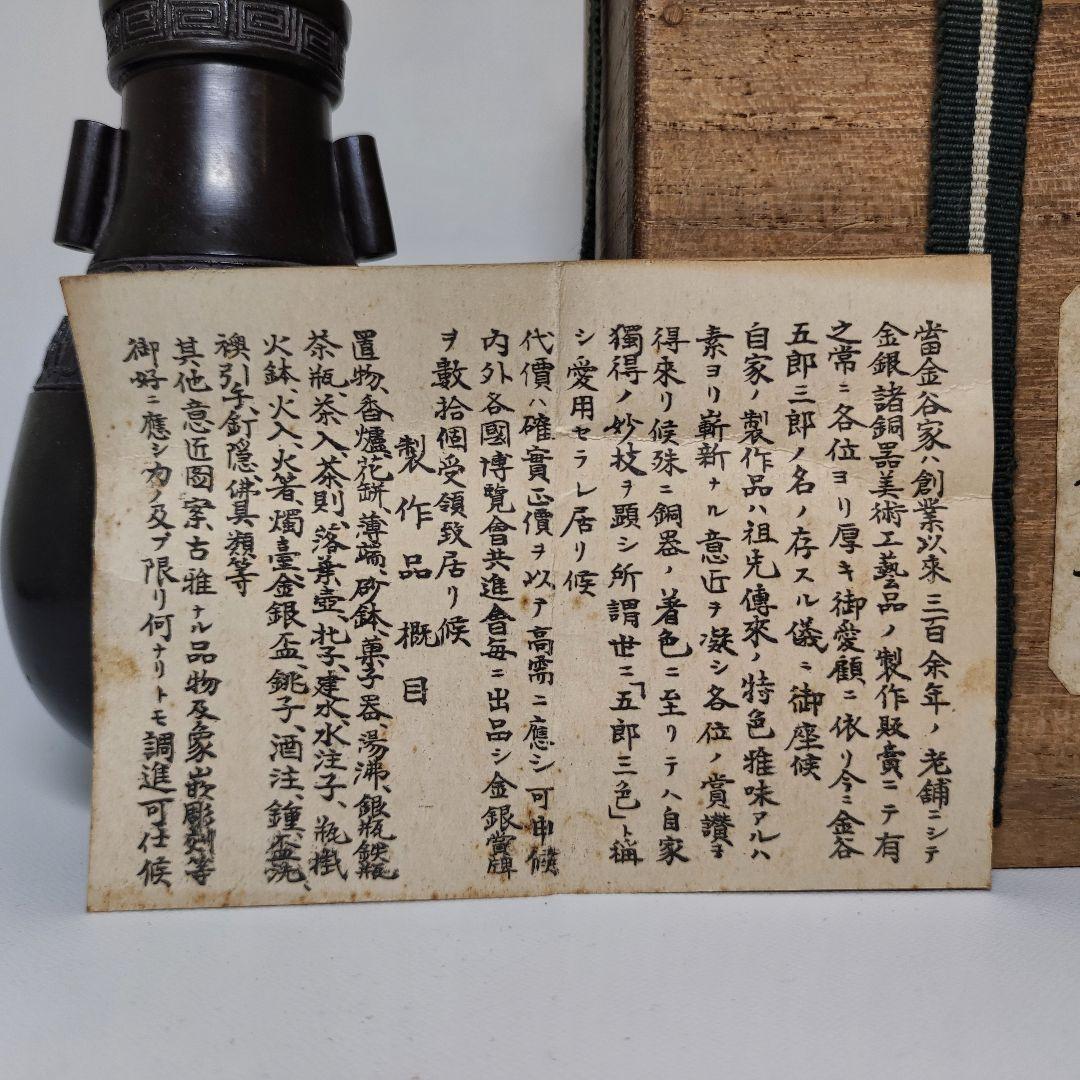 當金谷家ハ創業以來三百余年ノ老舗ニシテ
金銀諸銅器美術工藝品ノ製作販賣ニテ有
之常ニ各位ヨリ厚キ御愛顧ニ依リ今ニ金谷
五郎三郎ノ名ノ存スル儀ニ御座候
自家ノ製作品ハ祖先傳來ノ特色雅味アルハ
素ヨリ嶄新ナル意匠ヲ凝シ各位ノ賞讃ヲ
得來リ候殊ニ銅器ノ着色ニ至リテハ自家
獨得ノ妙技ヲ顕シ所謂世ニ「五郎三色」ト稱
シ愛用セラレ居リ候
代價ハ確實正價ヲ以テ高需ニ應シ可申候
内外各國博覽會共進會每ニ出品シ金銀賞牌
ヲ數拾個受領致居リ候
製作品概目
置物、香爐、花瓶、薄端、砂鉢、菓子器、湯沸、銀瓶、鉄瓶
茶瓶、茶入、茶則、落葉壺、杓子、建水、水注子、瓶掛
火鉢、火入、火箸、燭臺、金銀盃、銚子、酒注、鐘、盃洗、
襖引手、釘隠、佛具類等
其他意匠図案、古雅ナル品物及象嵌彫刻等
御好ニ應シ力ノ及ブ限リ何ナリトモ調進可仕候